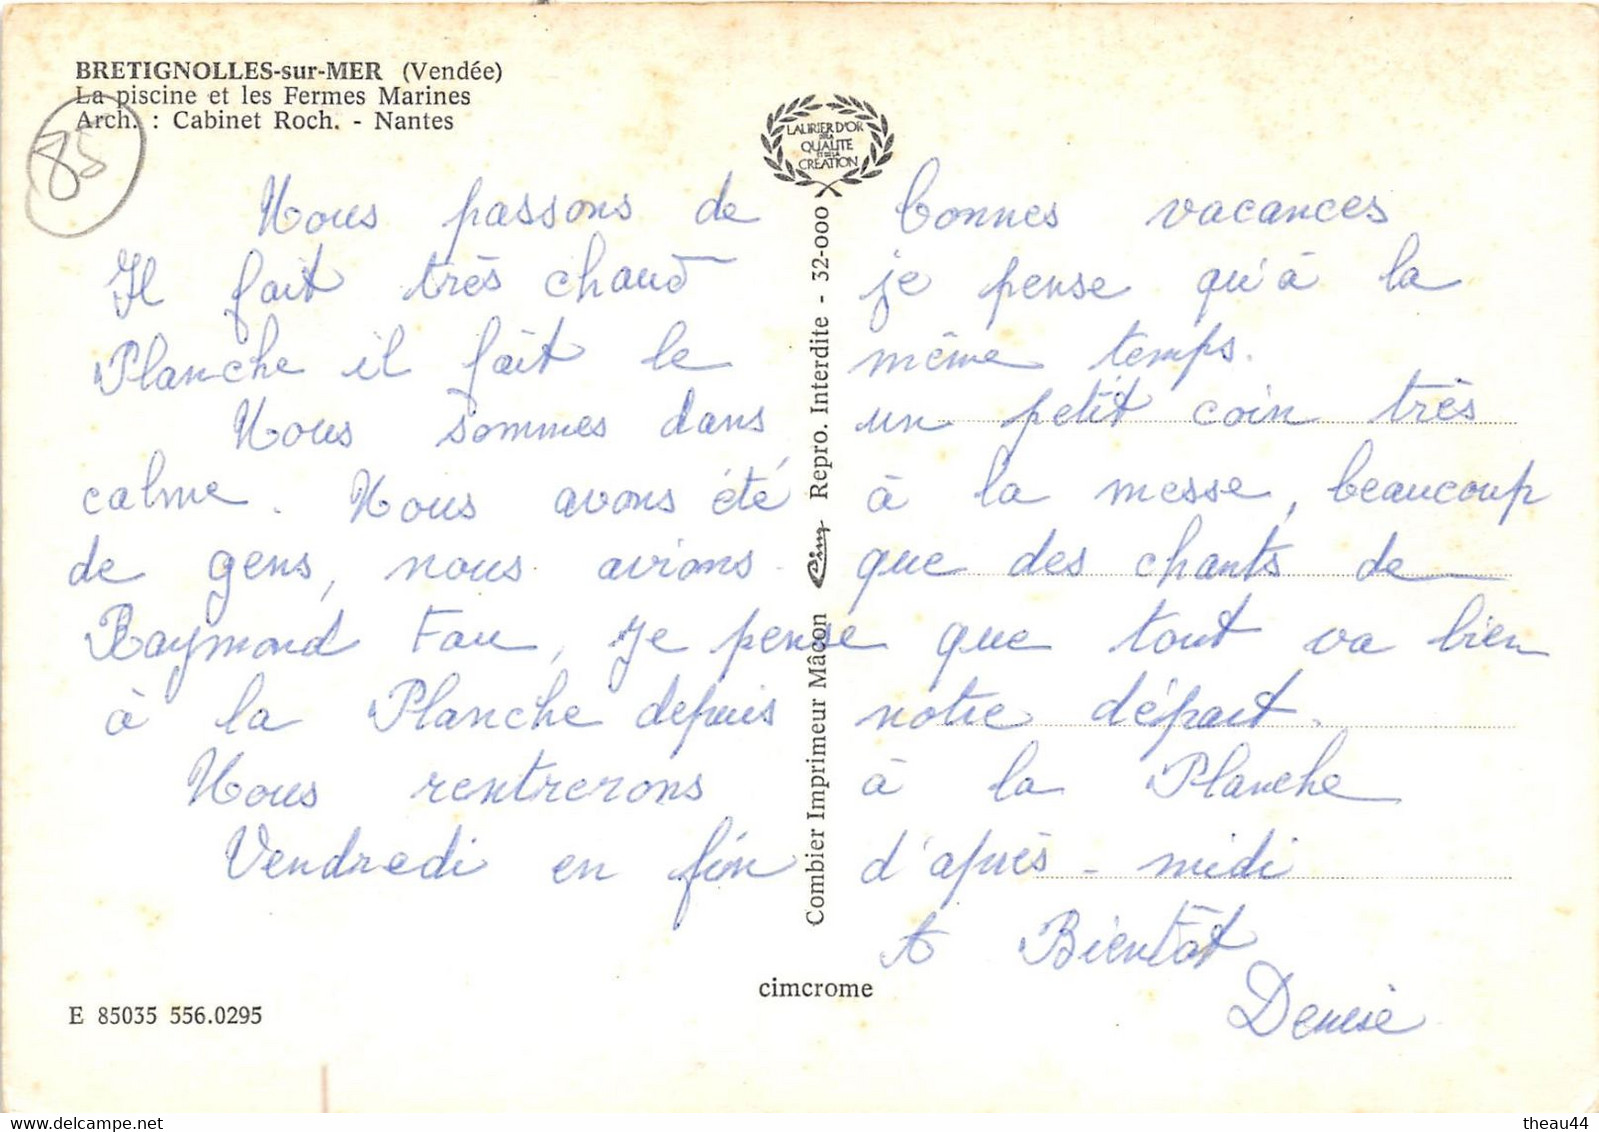 BRETIGNOLLES-sur-MER (Vendée)
La piscine et les Fermes Marines
Arch. : Cabinet Roch. - Nantes
85
LAURIER D'OR
DE LA
QUALITE
ET DE LA
CREATION
Nous passons de bonnes vacances
Il fait très chaud je pense qu'à la
Planche il fait le même temps.
Nous sommes dans un petit coin très
calme. Nous avons été à la messe, beaucoup
de gens, nous avions que des chants de
Raymond Fau, je pense que tout va bien
à la Planche depuis notre départ.
Nous rentrerons à la Planche
Vendredi en fin d'après-midi
A Bientôt
Denise
Combier Imprimeur Mâcon Cim Repro. Interdite - 32-000
cimcrome
E 85035 556.0295
theau44